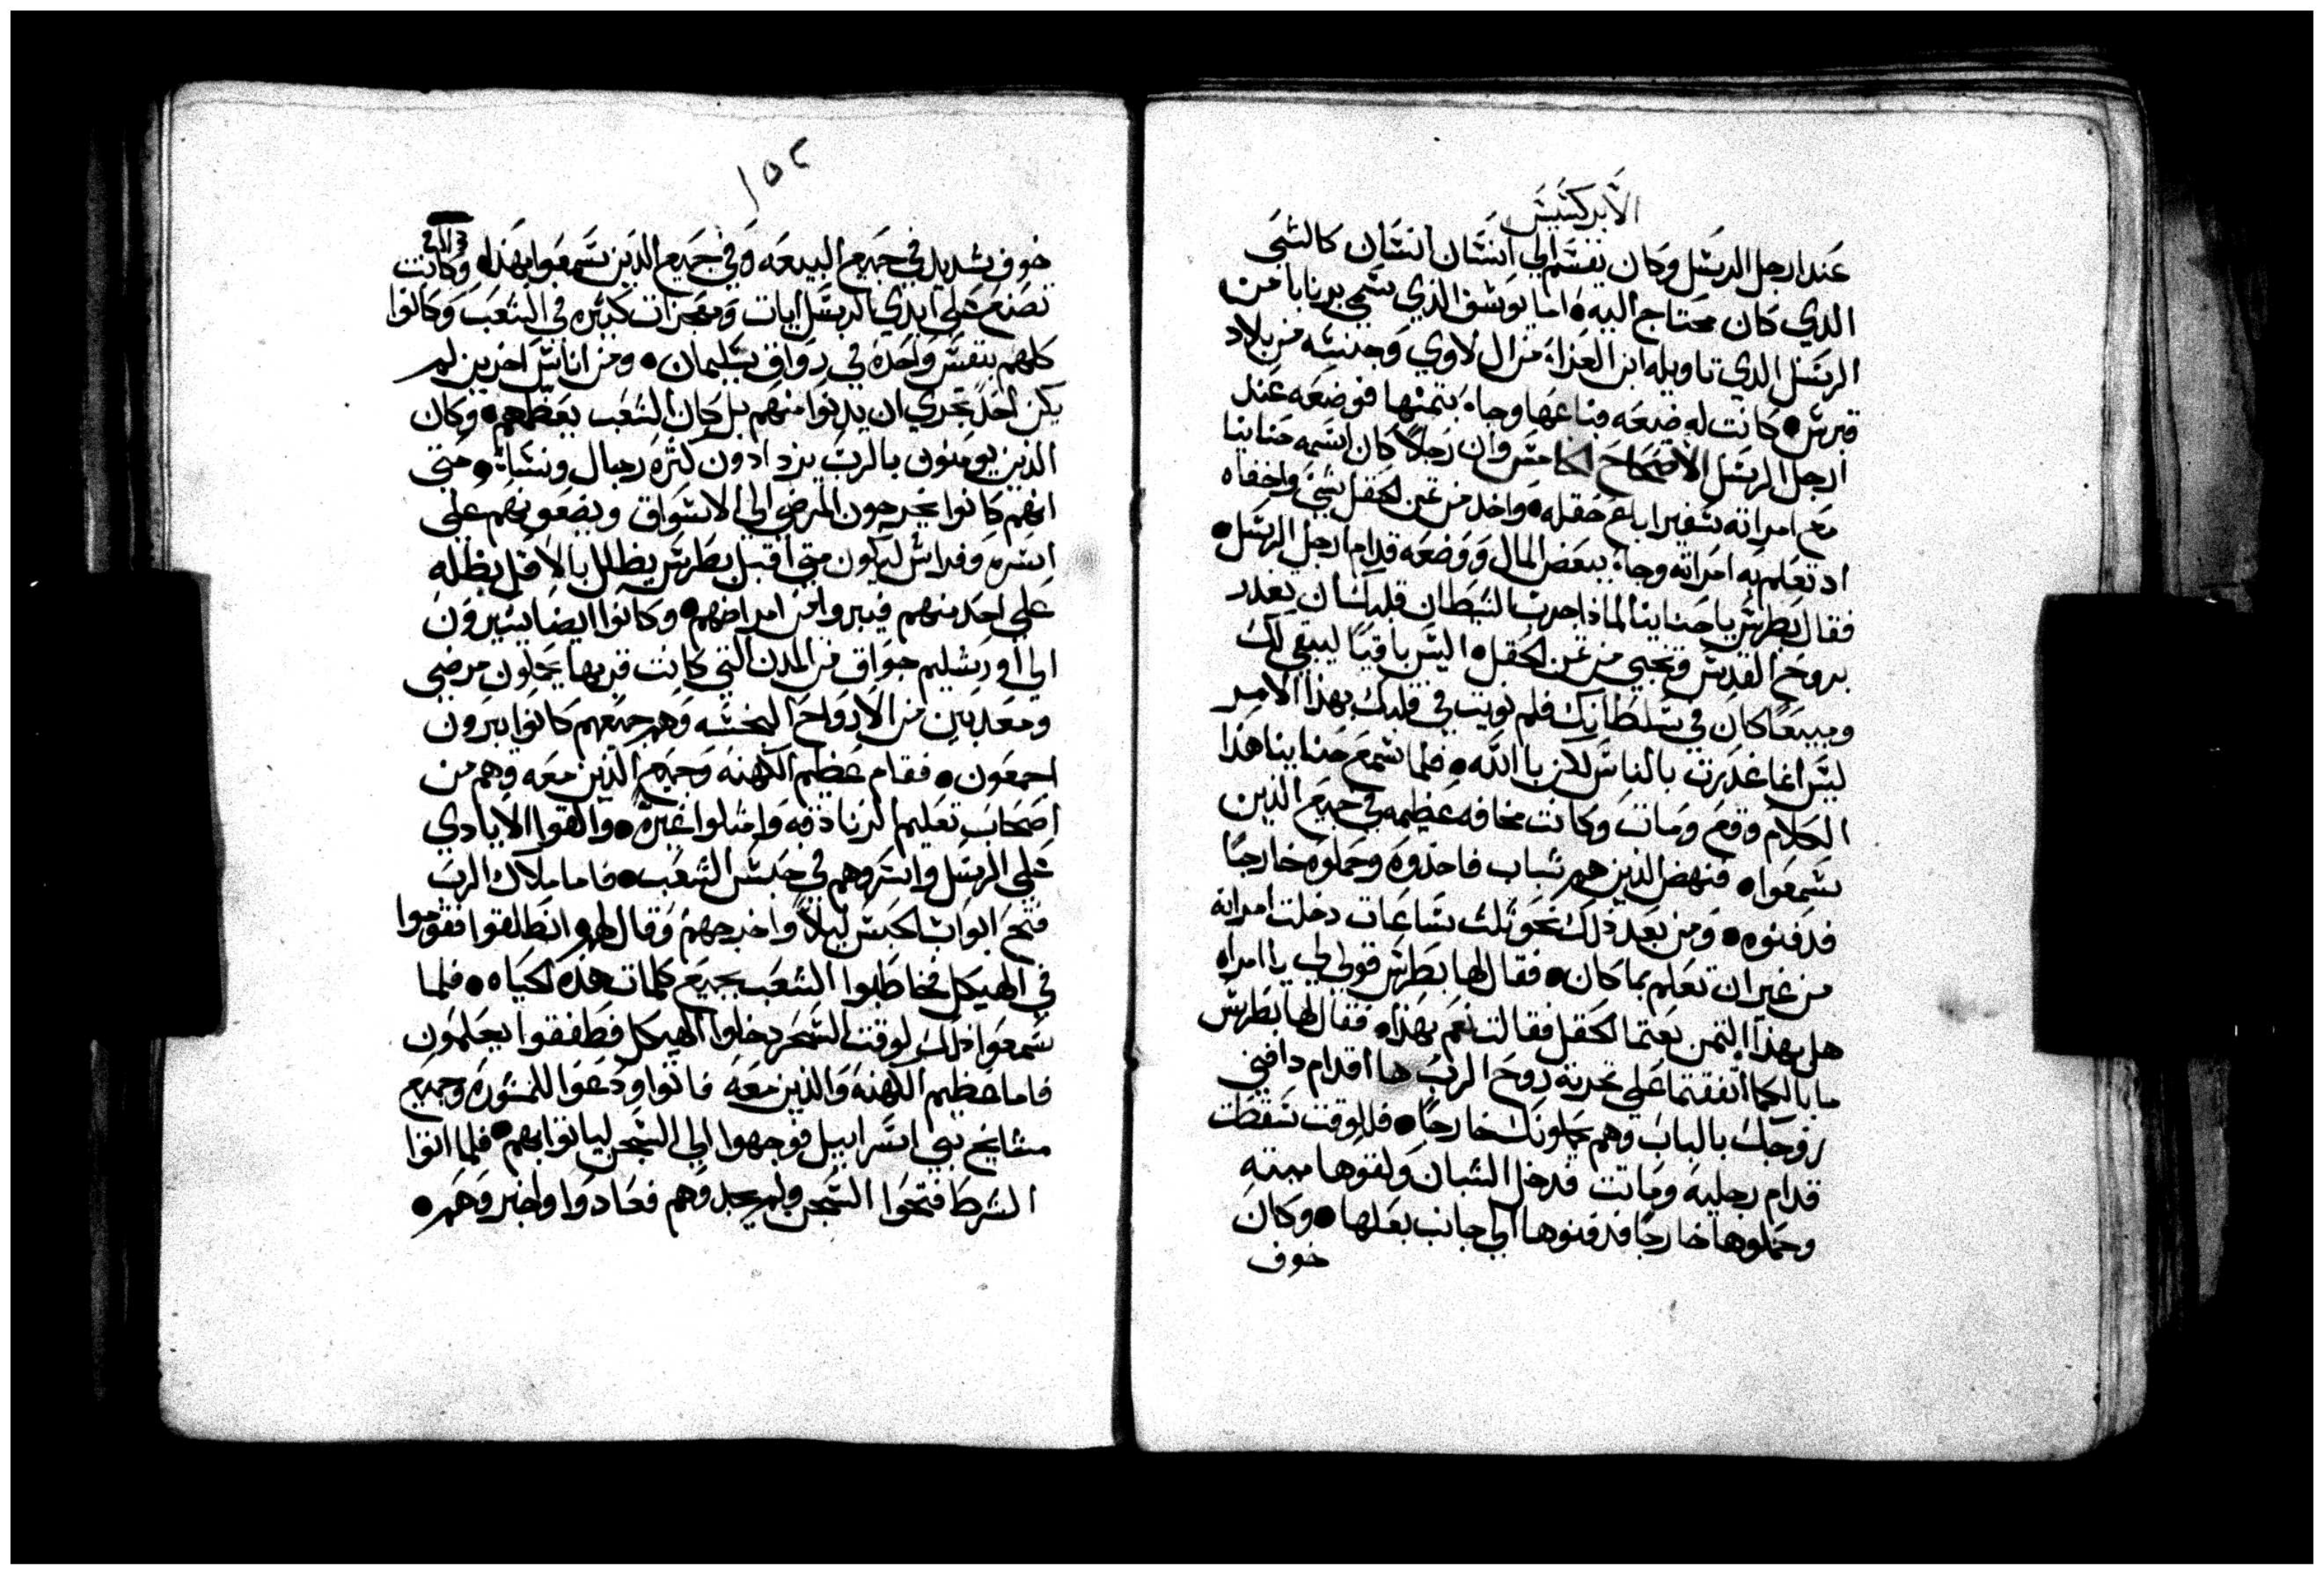 الابركسيس
عند ارجل الرسل وكان يقسم الي انسان انسان كالشي
الدي كان محتاج اليه • اما يوسف الذي سمي برنابا من
الرسل الدي تاويله ابن العزاء من ال لاوي وجنسه من بلاد
قبرس • كانت له ضيعه فباعها وجاء بتمنها فوضعه عند
ارجل الرسل الاصحاح الخامس وان رجلا كان اسمه حنانيا
مع امراته سفيرا باع حقله • واخد من تمن الحقل شي واخفاه
اد تعلم به امراته وجاء ببعض المال ووضعه قدام ارجل الرسل •
فقال بطرس يا حنانيا لماذا جرب الشيطان قلبك ان تغدر
بروح القدس وتخبي من تمن الحقل • اليس باقيا ليبقي لك
ومبيعا كان في سلطانك فلم نويت في قلبك بهذا الامر
ليس انما غدرت بالناس لاكن باالله • فلما سمع حنانيا هذا
الكلام وقع ومات وكانت مخافه عظيمه في جميع الذين
سمعوا • فنهض الذين هم شباب فاخذوه وحملوه خارجا
فدفنوه • ومن بعد ذلك نحو تلت ساعات دخلت امراته
من غير ان تعلم بما كان • فقال لها بطرس قولي لي يا امراه
هل بهذا التمن بعتما الحقل فقالت نعم بهذا • فقال لها بطرس
ما بالكما اتفقتما علي تجربة روح الرب ها اقدام دافني
زوجك بالباب وهم يحملونك خارجا • فللوقت سقطت
قدام رجليه وماتت فدخل الشبان ولقوها ميته
وحملوها خارجا فدفنوها الي جانب بعلها • وكان
خوف
١٥٢
خوف شديد في جميع البيعه وفي جميع الذين سمعوا بهذا • وكانت
تصنع علي ايدي الرسل ايات ومعجزات كثيره في الشعب وكانوا
كلهم بنفس واحده في رواق سليمان • ومن اناس اخرين لم
يكن احد يجري ان يدنوا منهم بل كان الشعب يعظمهم • وكان
الذين يومنون بالرب يزدادون كثره رجال ونساء • حتى
انهم كانوا يخرجون المرضى الي الاسواق ويضعونهم على
اسره وفراش ليكون متي اقبل بطرس يظلل بالاقل بظله
علي احد منهم فيبروا من امراضهم • وكانوا ايضا يسيرون
الي اورشليم جواق من المدن التي كانت قربها يحملون مرضى
ومعذبين من الارواح النجسه وهم جميعهم كانوا يبرون
اجمعون • فقام عظيم الكهنه وجميع الذين معه وهم من
اصحاب تعليم الزنادقه وامتلوا غيره • والقوا الايادي
علي الرسل واسروهم في حبس الشعب • فاما ملاك الرب
فتح ابواب الحبس ليلا واخرجهم وقال لهم انطلقوا فقوموا
في الهيكل فخاطبوا الشعب بجميع كلمات هذه الحياه • فلما
سمعوا ذلك لوقت السحر دخلوا الهيكل فطفقوا يعلمون
فاما عظيم الكهنه والذين معه فاتوا ودعوا للمشوره وجميع
مشايخ بني اسراييل فوجهوا الي السجن لياتوا بهم • فلما اتوا
الشرط فتحوا السجن ولم يجدوهم فعادوا واخبروهم •